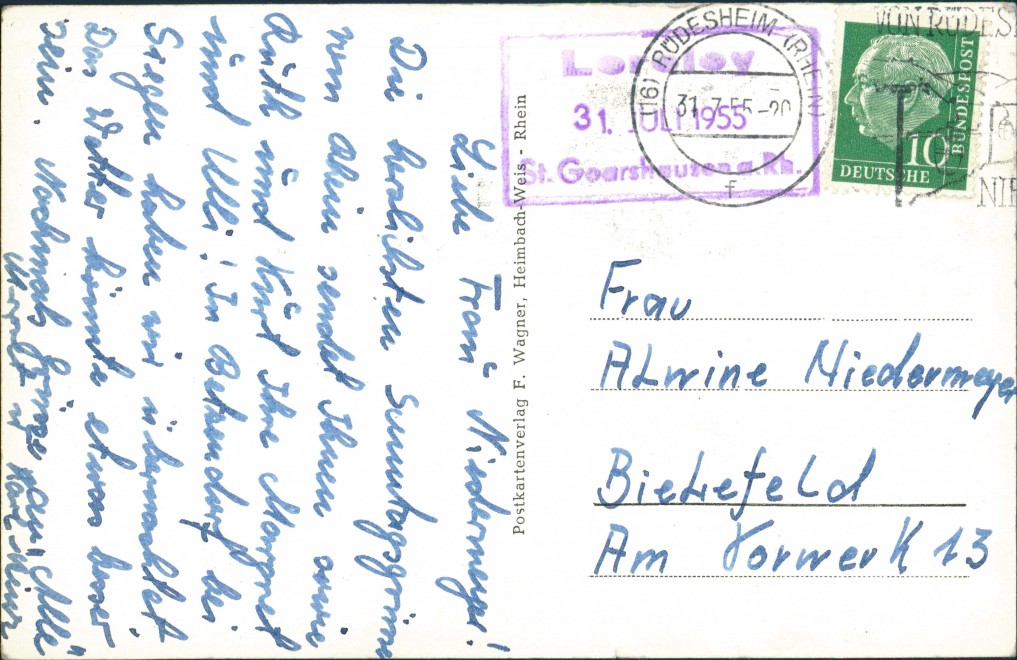 Liebe Frau Niedermeyer!
Die herzlichsten Sonntagsgrüsse
vom Rhein sendet Ihnen sowie
Ruth und Kurt Ihre Margret
und Ulli! In Betzdorf bei
Siegen haben wir übernachtet
Das Wetter könnte etwas besser
sein. Nochmals Grüsse an „Alle"
Margret u. Karl-Heinz
Postkartenverlag F. Wagner, Heimbach-Weis - Rhein
Loreley
31. JULI 1955
St. Goarshausen a. Rh.
(16) RÜDESHEIM (RHEIN)
31.7.55-20
f
VON RÜDES
NIE
BUNDESPOST
10
DEUTSCHE
Frau
Alwine Niedermeyer
Bielefeld
Am Vorwerk 13